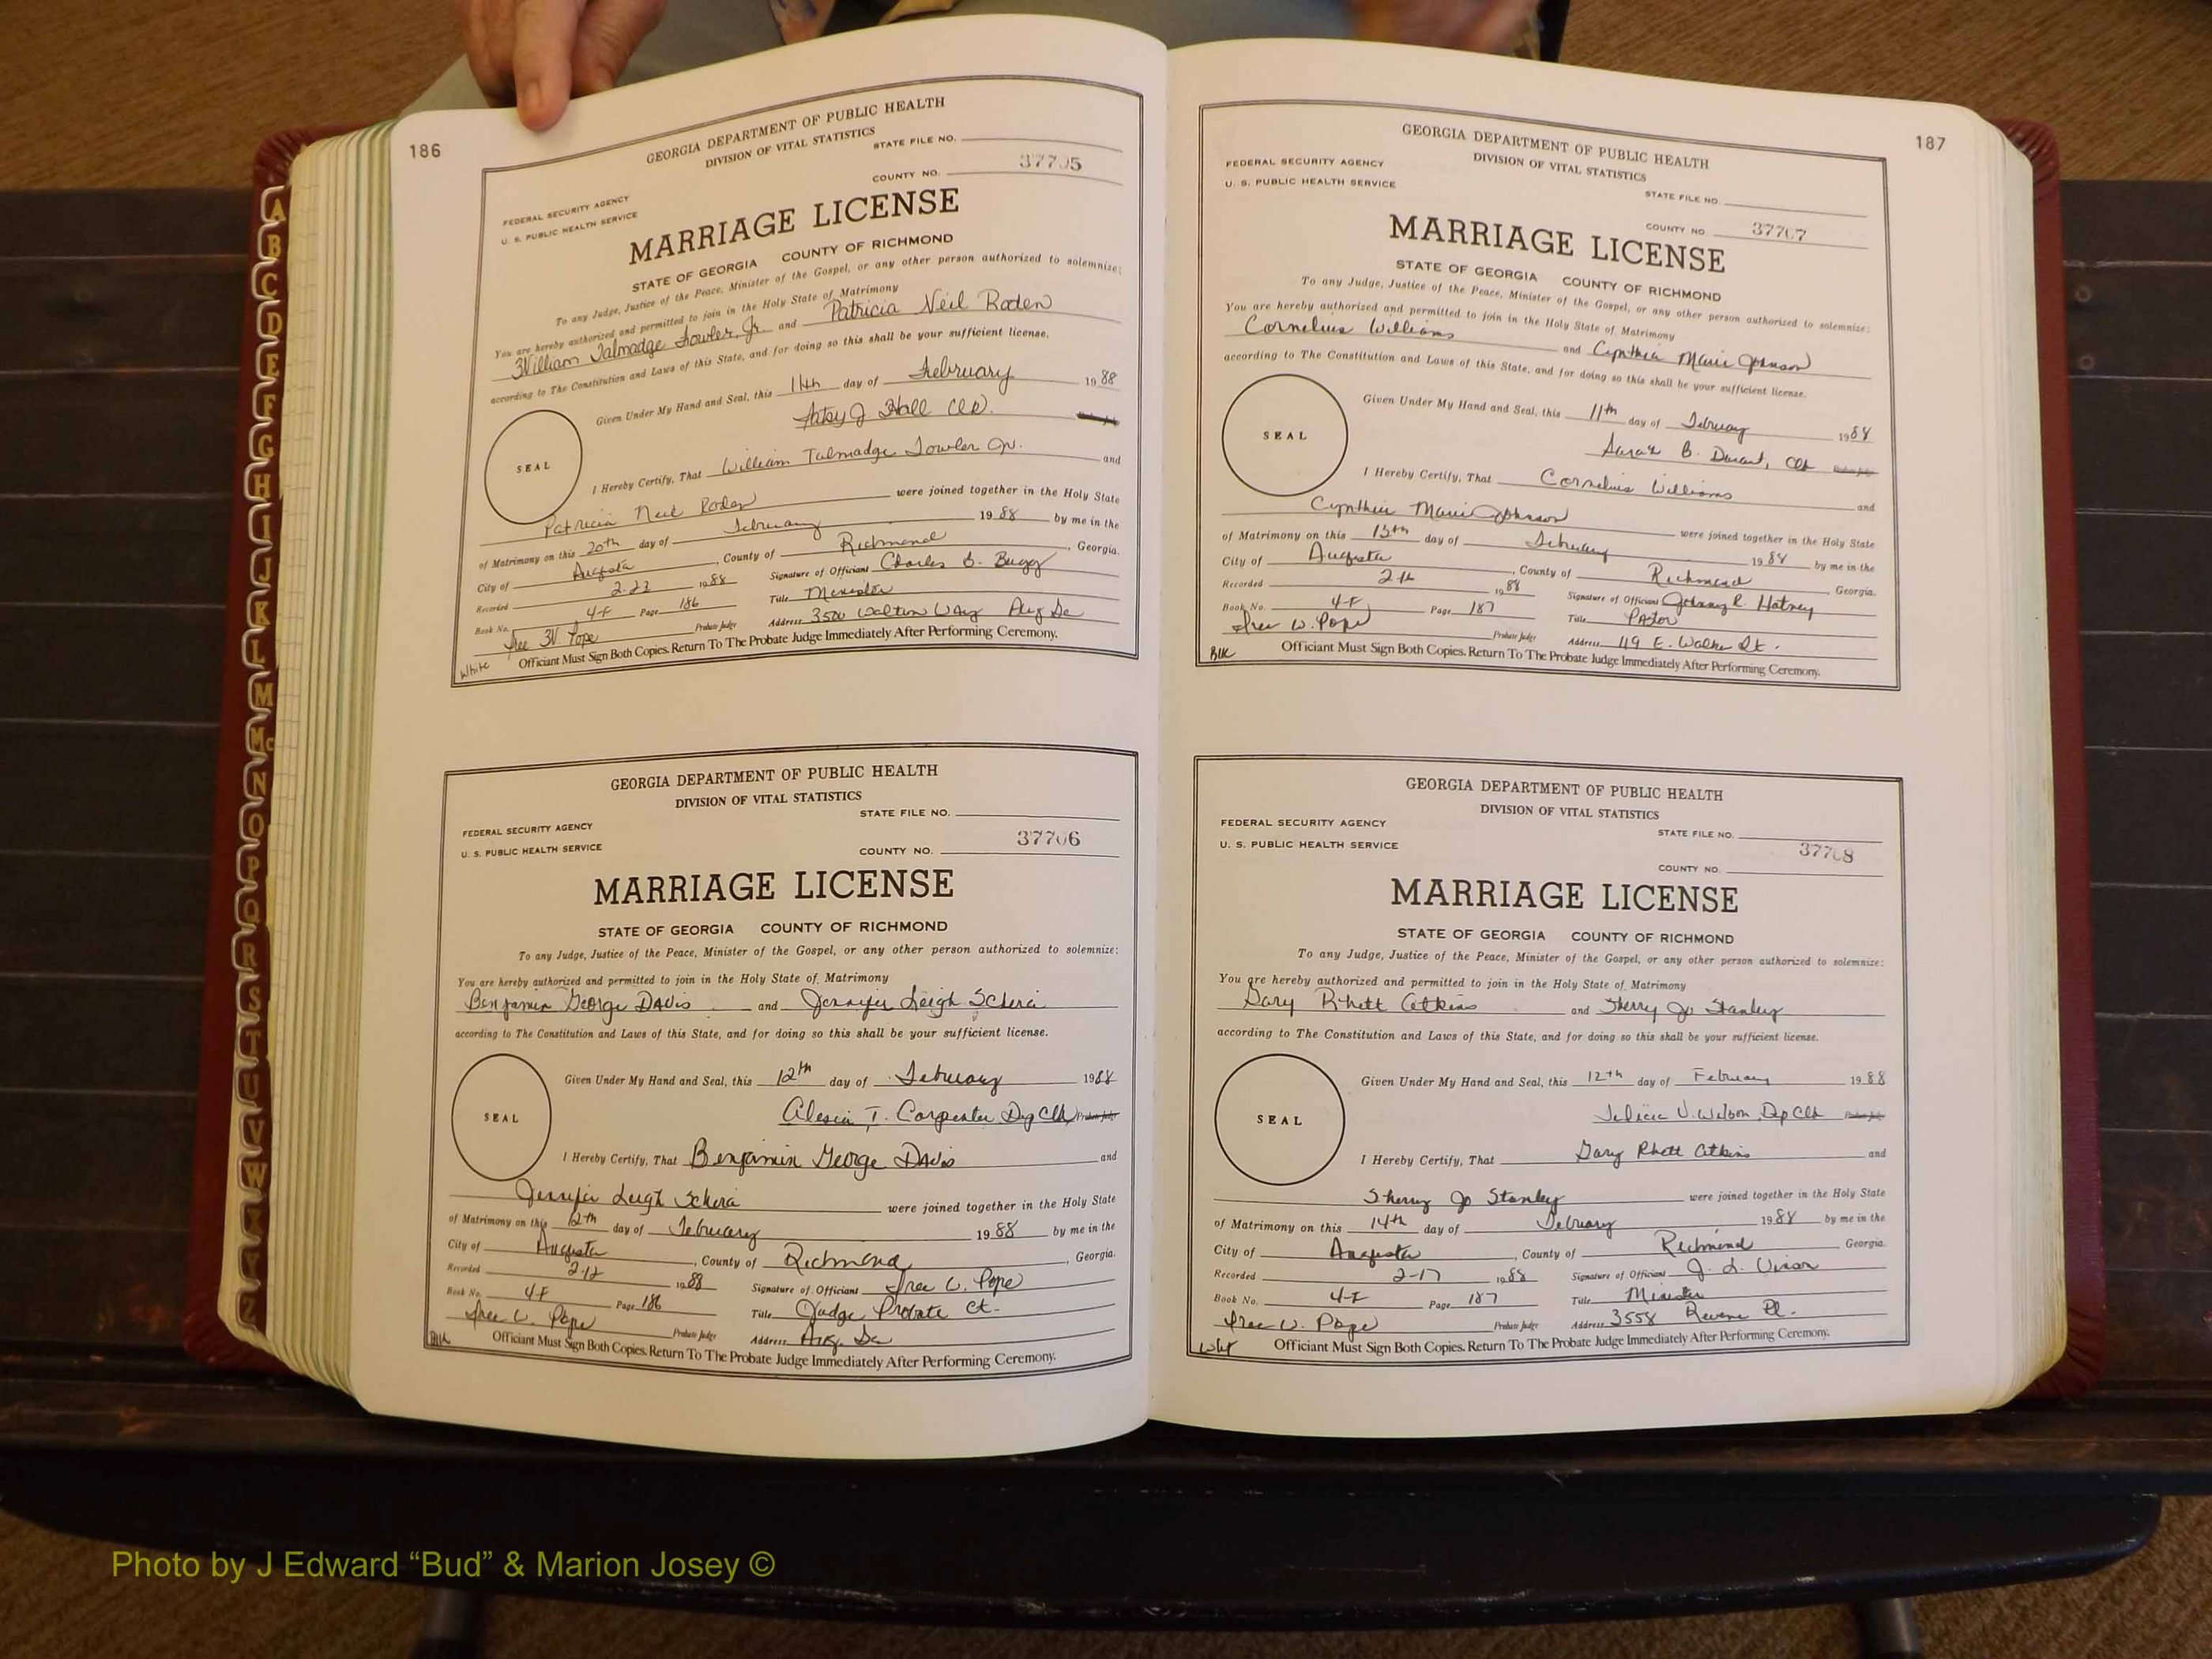 186
GEORGIA DEPARTMENT OF PUBLIC HEALTH
DIVISION OF VITAL STATISTICS
STATE FILE NO.
37705
COUNTY NO.
FEDERAL SECURITY AGENCY
U. S. PUBLIC HEALTH SERVICE
MARRIAGE LICENSE
STATE OF GEORGIA COUNTY OF RICHMOND
To any Judge, Justice of the Peace, Minister of the Gospel, or any other person authorized to solemnize:
You are hereby authorized and permitted to join in the Holy State of Matrimony
William Talmadge Fowler, Jr. and Patricia Neil Roden
according to The Constitution and Laws of this State, and for doing so this shall be your sufficient license.
Given Under My Hand and Seal, this 11th day of February 1988
J Hall
SEAL
I Hereby Certify, That William Talmadge Fowler Jr. and
Patricia Neil Roden were joined together in the Holy State
of Matrimony on this 20th day of February 1988 by me in the
City of Augusta, County of Richmond, Georgia.
Recorded 2-23 1988 Signature of Officiant Charles B. Bugg
Book No. 4-F Page 186 Title Minister
Free W. Pope Probate Judge Address 3500 Walton Way Aug Ga
White Officiant Must Sign Both Copies. Return To The Probate Judge Immediately After Performing Ceremony.
GEORGIA DEPARTMENT OF PUBLIC HEALTH
DIVISION OF VITAL STATISTICS
STATE FILE NO.
FEDERAL SECURITY AGENCY
37706
U. S. PUBLIC HEALTH SERVICE
COUNTY NO.
MARRIAGE LICENSE
STATE OF GEORGIA COUNTY OF RICHMOND
To any Judge, Justice of the Peace, Minister of the Gospel, or any other person authorized to solemnize:
You are hereby authorized and permitted to join in the Holy State of Matrimony
Benjamin George Davis and Jennifer Leigh Scherci
according to The Constitution and Laws of this State, and for doing so this shall be your sufficient license.
Given Under My Hand and Seal, this 12th day of February 1988
Alesia T. Carpenter Dep Clk Probate Judge
SEAL
I Hereby Certify, That Benjamin George Davis and
Jennifer Leigh were joined together in the Holy State
of Matrimony on this 12th day of February 1988 by me in the
City of Augusta, County of Richmond, Georgia.
Recorded 2-12 1988 Signature of Officiant Free W. Pope
Book No. 4-F Page 186 Title Judge Probate Ct.
Free W. Pope Probate Judge Address Aug. Ga
Blk Officiant Must Sign Both Copies. Return To The Probate Judge Immediately After Performing Ceremony.
187
GEORGIA DEPARTMENT OF PUBLIC HEALTH
DIVISION OF VITAL STATISTICS
FEDERAL SECURITY AGENCY
U. S. PUBLIC HEALTH SERVICE
STATE FILE NO.
COUNTY NO. 37707
MARRIAGE LICENSE
STATE OF GEORGIA COUNTY OF RICHMOND
To any Judge, Justice of the Peace, Minister of the Gospel, or any other person authorized to solemnize:
You are hereby authorized and permitted to join in the Holy State of Matrimony
Cornelius Williams and Cynthia Marie Johnson
according to The Constitution and Laws of this State, and for doing so this shall be your sufficient license.
Given Under My Hand and Seal, this 11th day of February 1988
Sarah B. Durant, Clk Probate Judge
SEAL
I Hereby Certify, That Cornelius Williams and
Cynthia Marie Johnson were joined together in the Holy State
of Matrimony on this 13th day of February 1988 by me in the
City of Augusta, County of Richmond, Georgia.
Recorded 1988 Signature of Officiant Johnny R. Hatney
Book No. 4-F Page 187 Title Pastor
Free W. Pope Probate Judge Address 119 E. Walker St.
Blk Officiant Must Sign Both Copies. Return To The Probate Judge Immediately After Performing Ceremony.
GEORGIA DEPARTMENT OF PUBLIC HEALTH
DIVISION OF VITAL STATISTICS
FEDERAL SECURITY AGENCY
STATE FILE NO.
U. S. PUBLIC HEALTH SERVICE
37708
COUNTY NO.
MARRIAGE LICENSE
STATE OF GEORGIA COUNTY OF RICHMOND
To any Judge, Justice of the Peace, Minister of the Gospel, or any other person authorized to solemnize:
You are hereby authorized and permitted to join in the Holy State of Matrimony
Gary Rhett Atkins and Sherry Jo Stanley
according to The Constitution and Laws of this State, and for doing so this shall be your sufficient license.
Given Under My Hand and Seal, this 12th day of February 1988
Felicia V. Wilson, Dep Clk Probate Judge
SEAL
I Hereby Certify, That Gary Rhett Atkins and
Sherry Jo Stanley were joined together in the Holy State
of Matrimony on this 14th day of February 1988 by me in the
City of Augusta, County of Richmond Georgia.
Recorded 2-17 1988 Signature of Officiant J. L.
Book No. 4-F Page 187 Title Minister
Free W. Pope Probate Judge Address 3558 Pl.
Officiant Must Sign Both Copies. Return To The Probate Judge Immediately After Performing Ceremony.
A
B
C
D
E
F
G
H
I
J
K
L
M
Mc
N
O
P
Q
R
S
T
U
V
W
X
Y
Z
Photo by J Edward “Bud” & Marion Josey ©